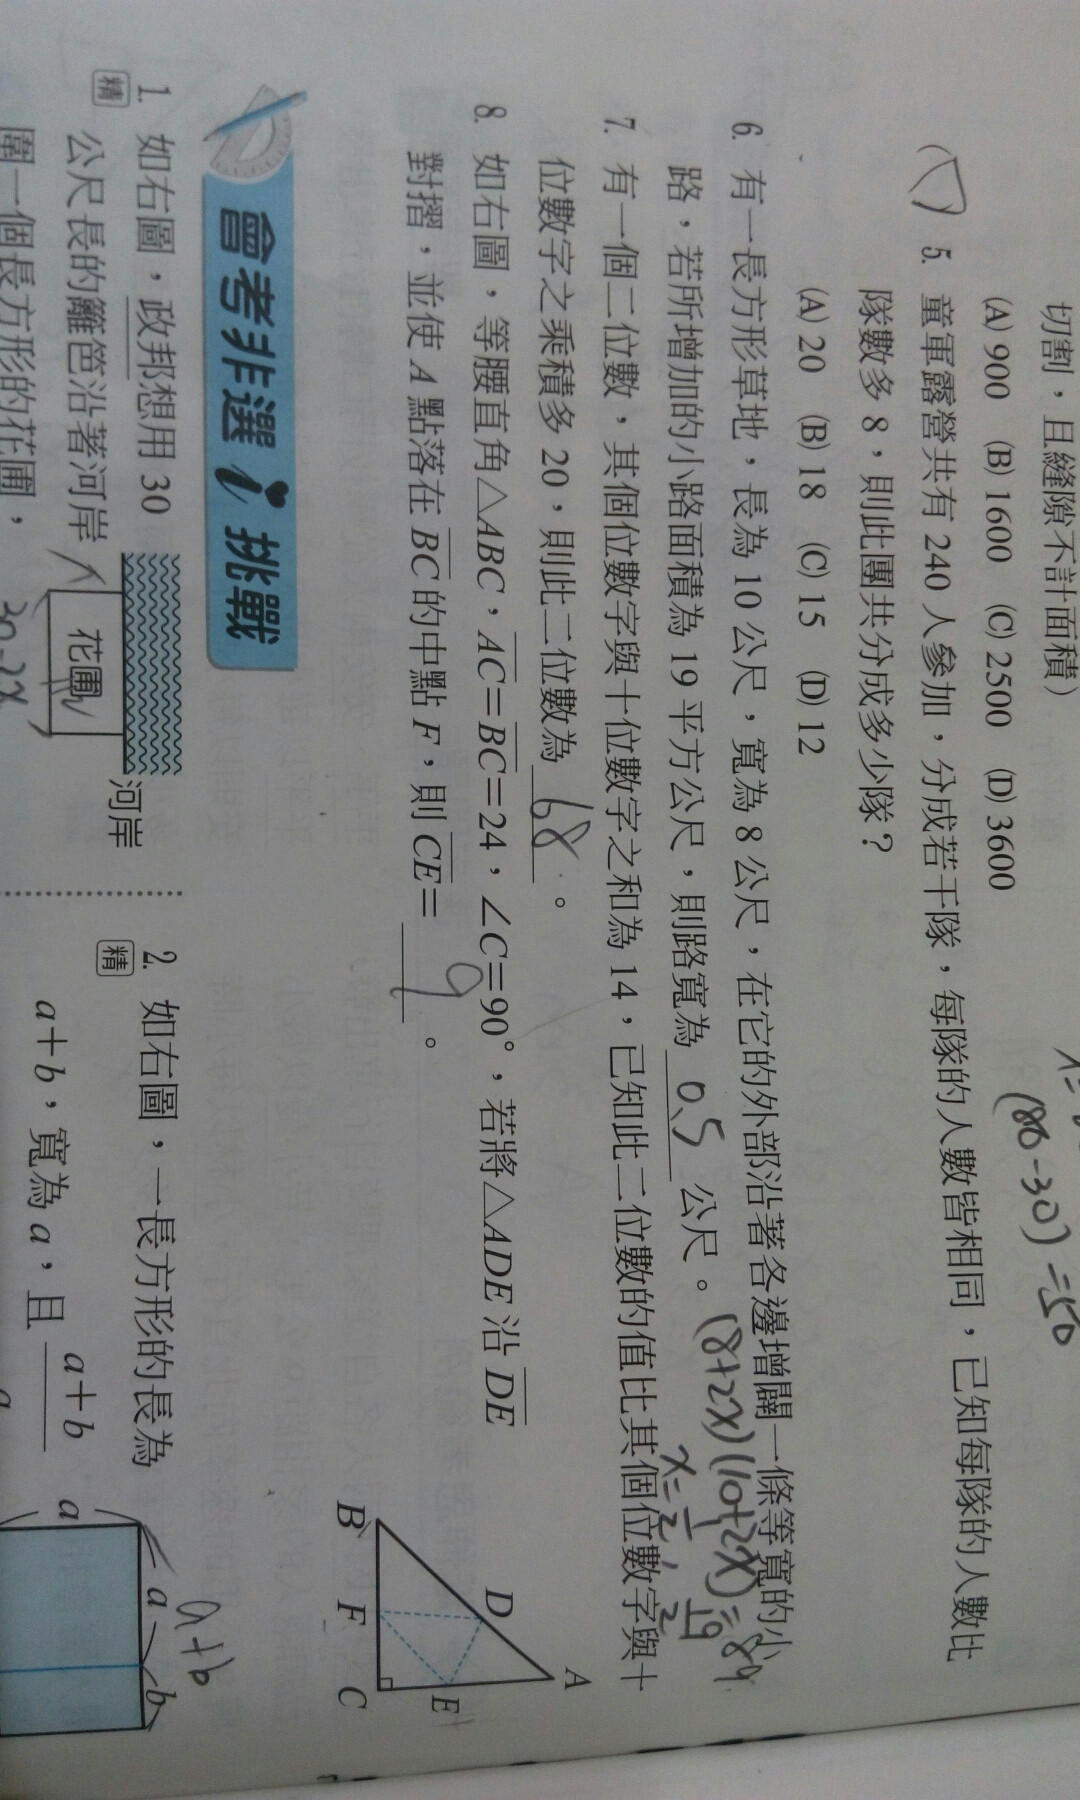 切割，且縫隙不計面積）
(A) 900 (B) 1600 (C) 2500 (D) 3600
(80-30)=50
( ) 5. 童軍露營共有 240 人參加，分成若干隊，每隊的人數皆相同，已知每隊的人數比
隊數多 8，則此團共分成多少隊？
(A) 20 (B) 18 (C) 15 (D) 12
6. 有一長方形草地，長為 10 公尺，寬為 8 公尺，在它的外部沿著各邊增闢一條等寬的小
路，若所增加的小路面積為 19 平方公尺，則路寬為 0.5 公尺。
(8+2x)(10+2x)=
7. 有一個二位數，其個位數字與十位數字之和為 14，已知此二位數的值比其個位數字與十
位數字之乘積多 20，則此二位數為 68 。
8. 如右圖，等腰直角△ABC，AC=BC=24，∠C=90°，若將△ADE 沿 DE
對摺，並使 A 點落在 BC 的中點 F，則 CE= 9 。
A
D
E
B F C
會考非選 挑戰
1. 如右圖，政邦想用 30
精
公尺長的籬笆沿著河岸
圍一個長方形的花圃，
花圃
河岸
2. 如右圖，一長方形的長為
精
a+b，寬為 a，且 a+b
a+b
a b
a